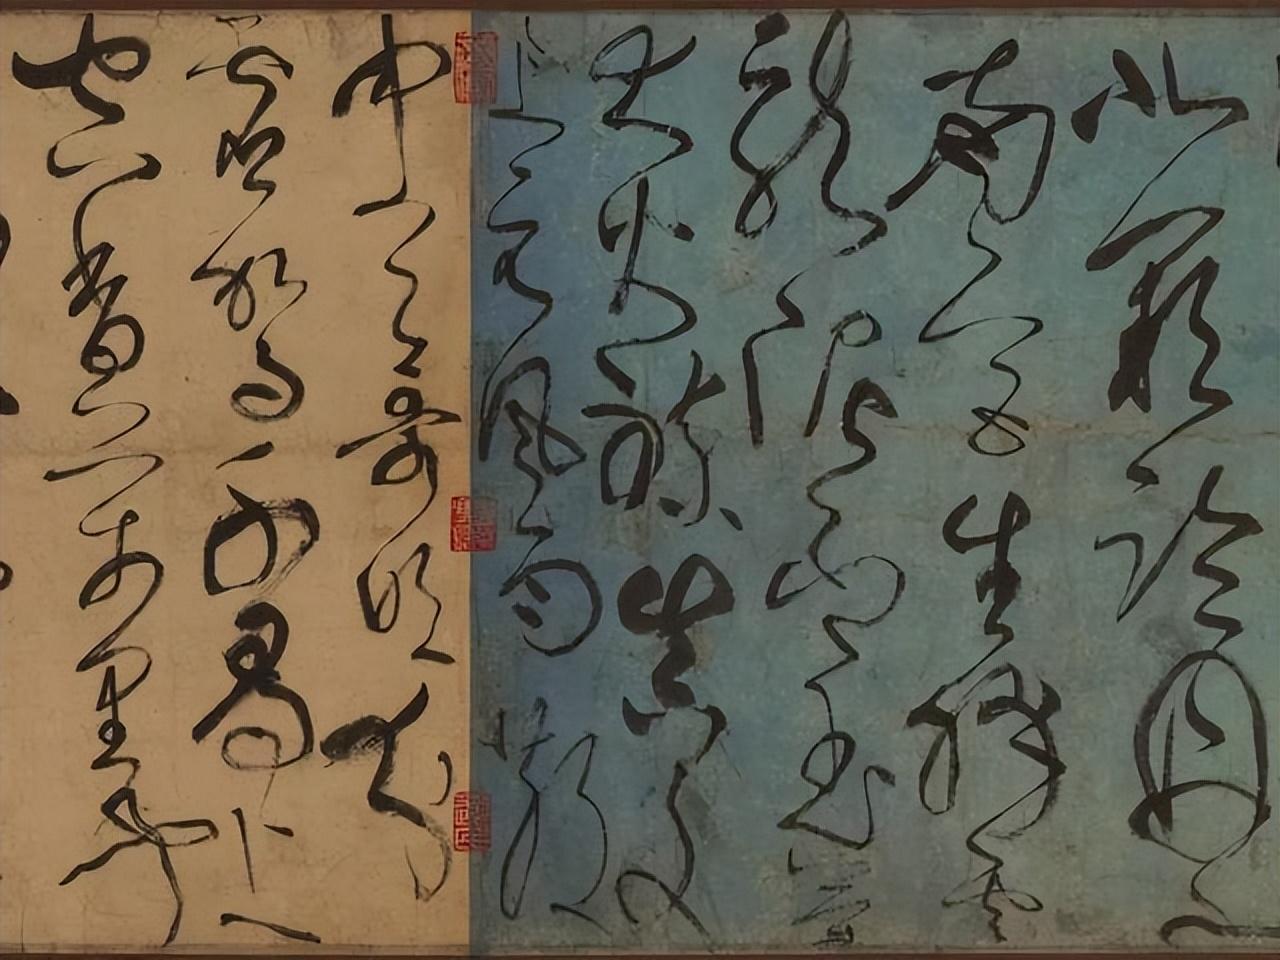 北闕臨丹水
南宮生絳雲
龍泥印玉簡
大火鍊真文
上元風雨散
中天哥吹分
虛駕千尋上
空香萬里聞